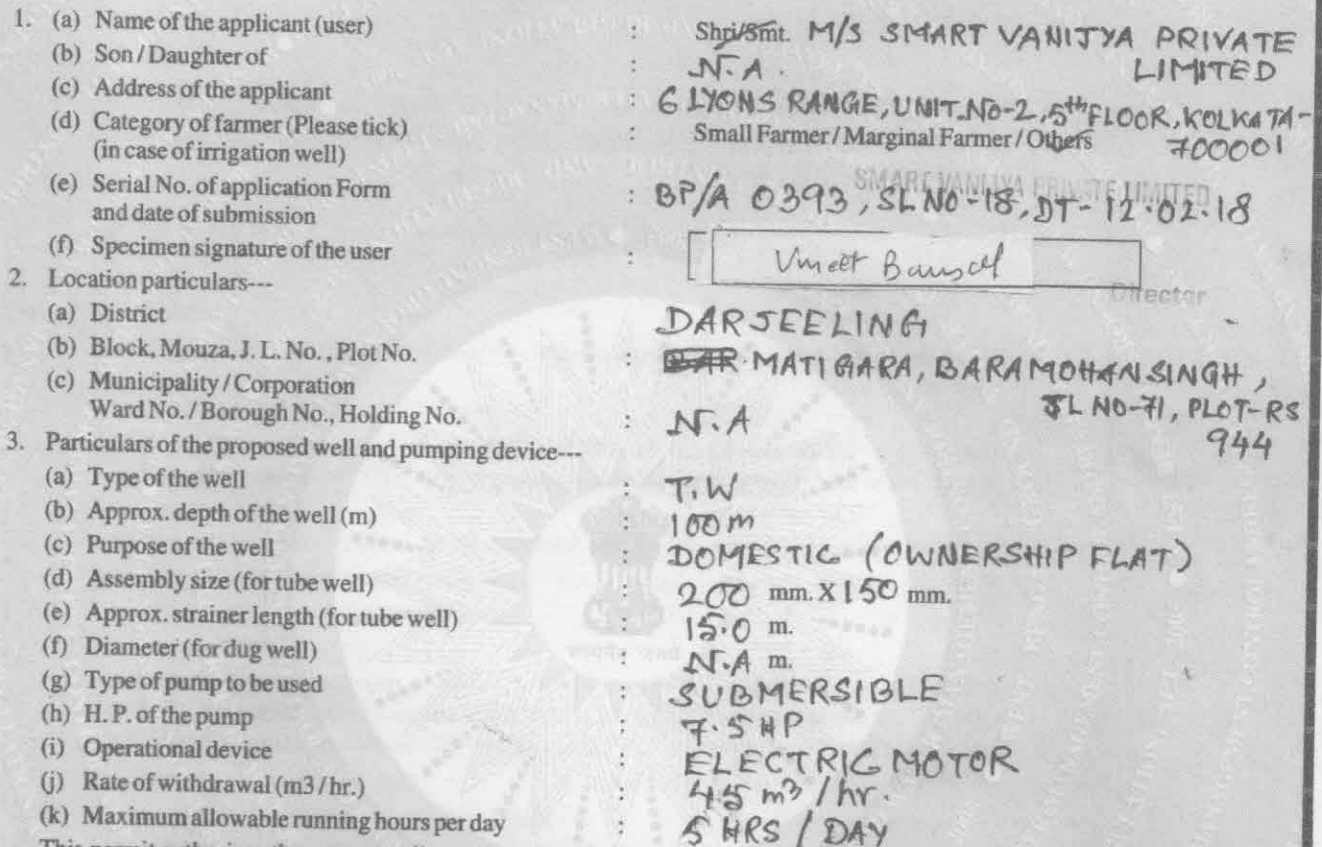 1. (a) Name of the applicant (user) : Shri/Smt. M/S SMART VANIJYA PRIVATE
LIMITED
(b) Son / Daughter of : N.A.
(c) Address of the applicant : 6 LYONS RANGE, UNIT NO-2, 5th FLOOR, KOLKATA-
700001
(d) Category of farmer (Please tick) : Small Farmer / Marginal Farmer / Others
(in case of irrigation well)
SMART VANIJYA PRIVATE LIMITED
(e) Serial No. of application Form : BP/A 0393, SL NO-18, DT- 12.02.18
and date of submission
(f) Specimen signature of the user : Vineet Bansal
Director
2. Location particulars---
(a) District DARJEELING
(b) Block, Mouza, J. L. No. , Plot No. : MATIGARA, BARAMOHANSINGH,
JL NO-71, PLOT-RS
944
(c) Municipality / Corporation
Ward No. / Borough No., Holding No. : N.A
3. Particulars of the proposed well and pumping device---
(a) Type of the well : T.W
(b) Approx. depth of the well (m) : 100 m
(c) Purpose of the well : DOMESTIC (OWNERSHIP FLAT)
(d) Assembly size (for tube well) : 200 mm. X 150 mm.
(e) Approx. strainer length (for tube well) : 15.0 m.
(f) Diameter (for dug well) : N.A m.
(g) Type of pump to be used : SUBMERSIBLE
(h) H. P. of the pump : 7.5 HP
(i) Operational device : ELECTRIC MOTOR
(j) Rate of withdrawal (m3 / hr.) : 45 m3 / hr.
(k) Maximum allowable running hours per day : 5 HRS / DAY